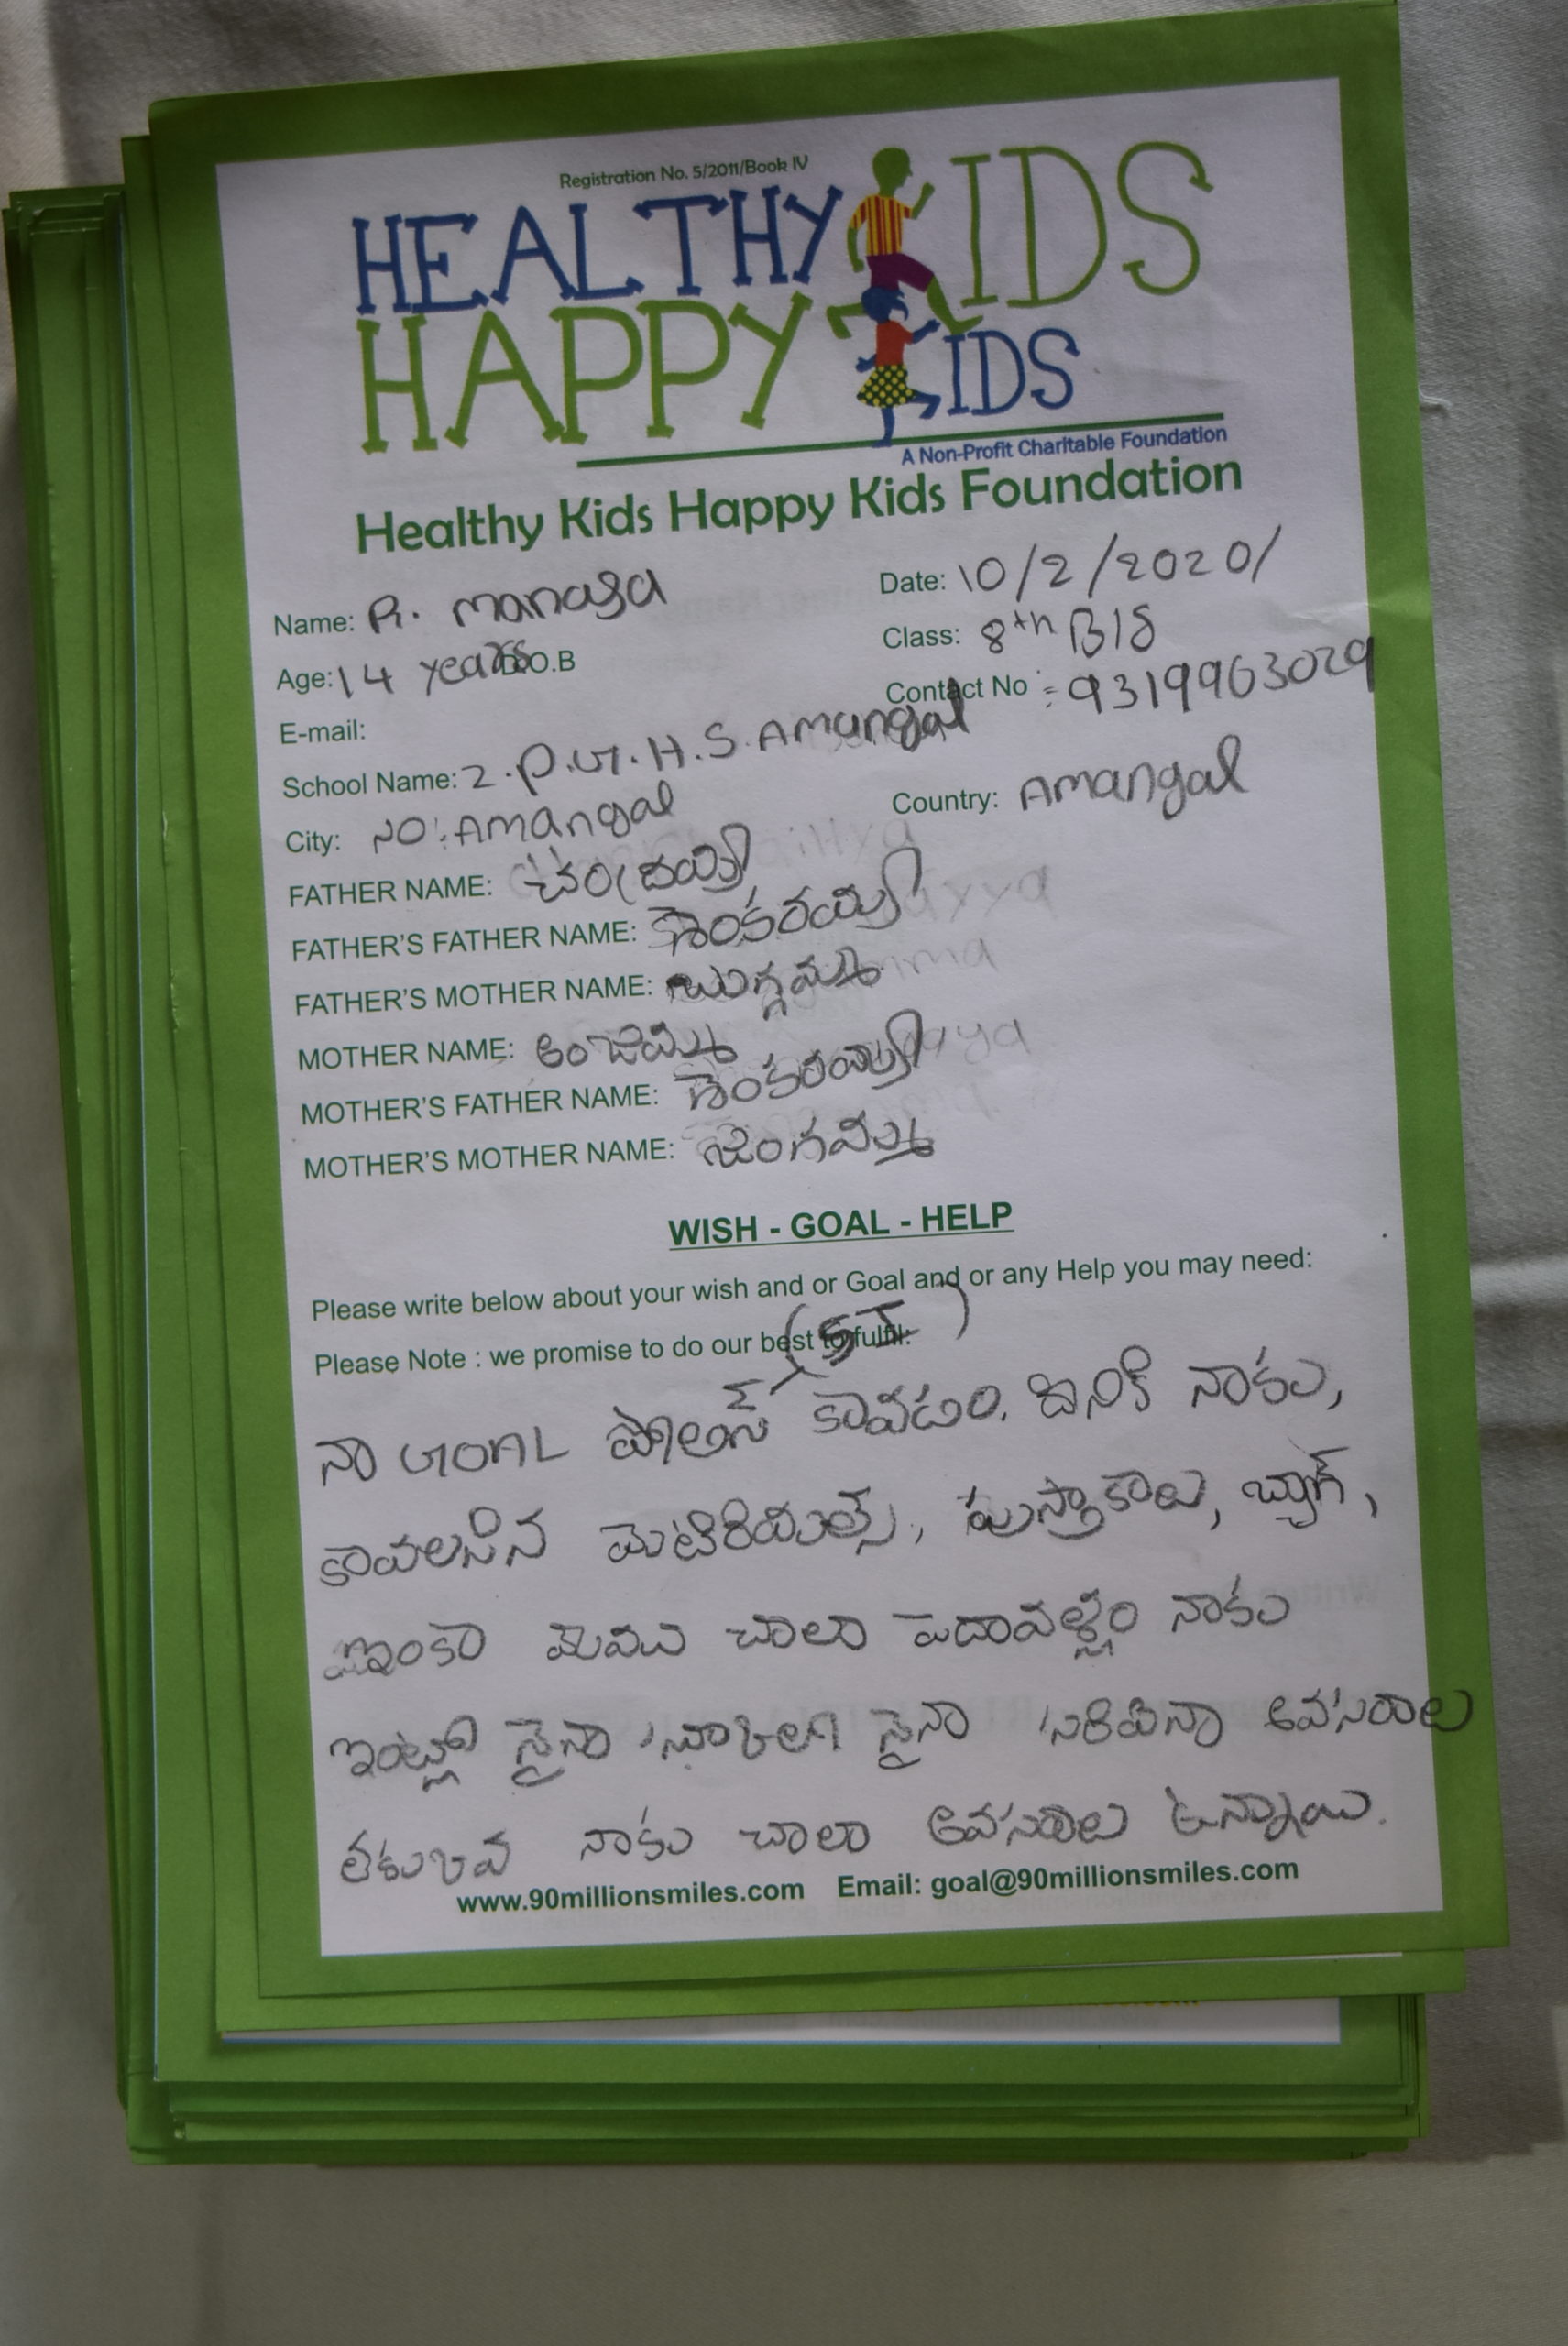 Registration No. 5/2011/Book IV
HEALTHY KIDS
HAPPY KIDS
A Non-Profit Charitable Foundation
Healthy Kids Happy Kids Foundation
Name: R. manasa Date: 10/2/2020/
Age: 14 years D.O.B Class: 8th B/S
E-mail: Contact No : 9319963029
School Name: Z.P.G.H.S. Amangal
City: Amangal Country: Amangal
FATHER NAME: చంద్రయ్య
FATHER'S FATHER NAME: శంకరయ్య
FATHER'S MOTHER NAME: బుగ్గమ్మ
MOTHER NAME: అంజమ్మ
MOTHER'S FATHER NAME: శంకరయ్య
MOTHER'S MOTHER NAME: జంగమ్మ
WISH - GOAL - HELP
Please write below about your wish and or Goal and or any Help you may need:
Please Note : we promise to do our best to fulfil:
(SI)
నా GOAL పోలిస్ కావడం. దినికి నాకు,
కావలసిన మెటిరియల్స్, పుస్తాకాలు, బ్యాగ్,
ఇంకా మెము చాలా పెదావళ్ళం నాకు
ఇంట్లో నైనా నైనా అవసరాలు
నాకు చాలా అవసరాలు ఉన్నాయి.
www.90millionsmiles.com Email: goal@90millionsmiles.com